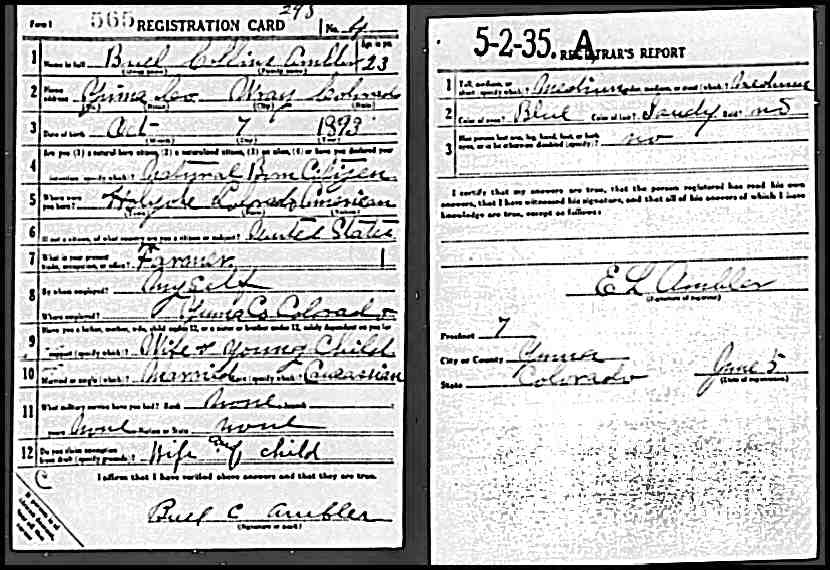 Form 1 565 REGISTRATION CARD 293 No. 4
1 Name in full Buel Collins Ambler Age, in yrs. 23
(Given name) (Family name)
2 Home address Yuma Co Wray Colorado
(No.) (Street) (City) (State)
3 Date of birth Oct 7 1893
(Month) (Day) (Year)
4 Are you (1) a natural born citizen, (2) a naturalized citizen, (3) an alien, (4) or have you declared your
intention (specify which)? Natural Born Citizen
5 Where were you born? Holyoke Colorado American
(Town) (State) (Nation)
6 If not a citizen, of what country are you a citizen or subject? United States
7 What is your present trade, occupation, or office? Farmer 1
8 By whom employed? Myself
Where employed? Yuma Co Colorado
9 Have you a father, mother, wife, child under 12, or a sister or brother under 12, solely dependent on you for
support (specify which)? Wife & Young Child
10 Married or single (which)? Married Race (specify which)? Caucassian
11 What military service have you had? Rank None branch
years None Nation or State None
12 Do you claim exemption from draft (specify grounds)? Wife and child
I affirm that I have verified above answers and that they are true.
Buel C Ambler
(Signature or mark)
5-2-35. A REGISTRAR'S REPORT
1 Tall, medium, or short (specify which)? Medium Slender, medium, or stout (which)? Medium
2 Color of eyes? Blue Color of hair? Sandy Bald? no
3 Has person lost arm, leg, hand, foot, or both
eyes, or is he otherwise disabled (specify)? no
I certify that my answers are true, that the person registered has read his own
answers, that I have witnessed his signature, and that all of his answers of which I have
knowledge are true, except as follows:
E L Ambler
(Signature of registrar)
Precinct 7
City or County Yuma
State Colorado June 5
(Date of registration)